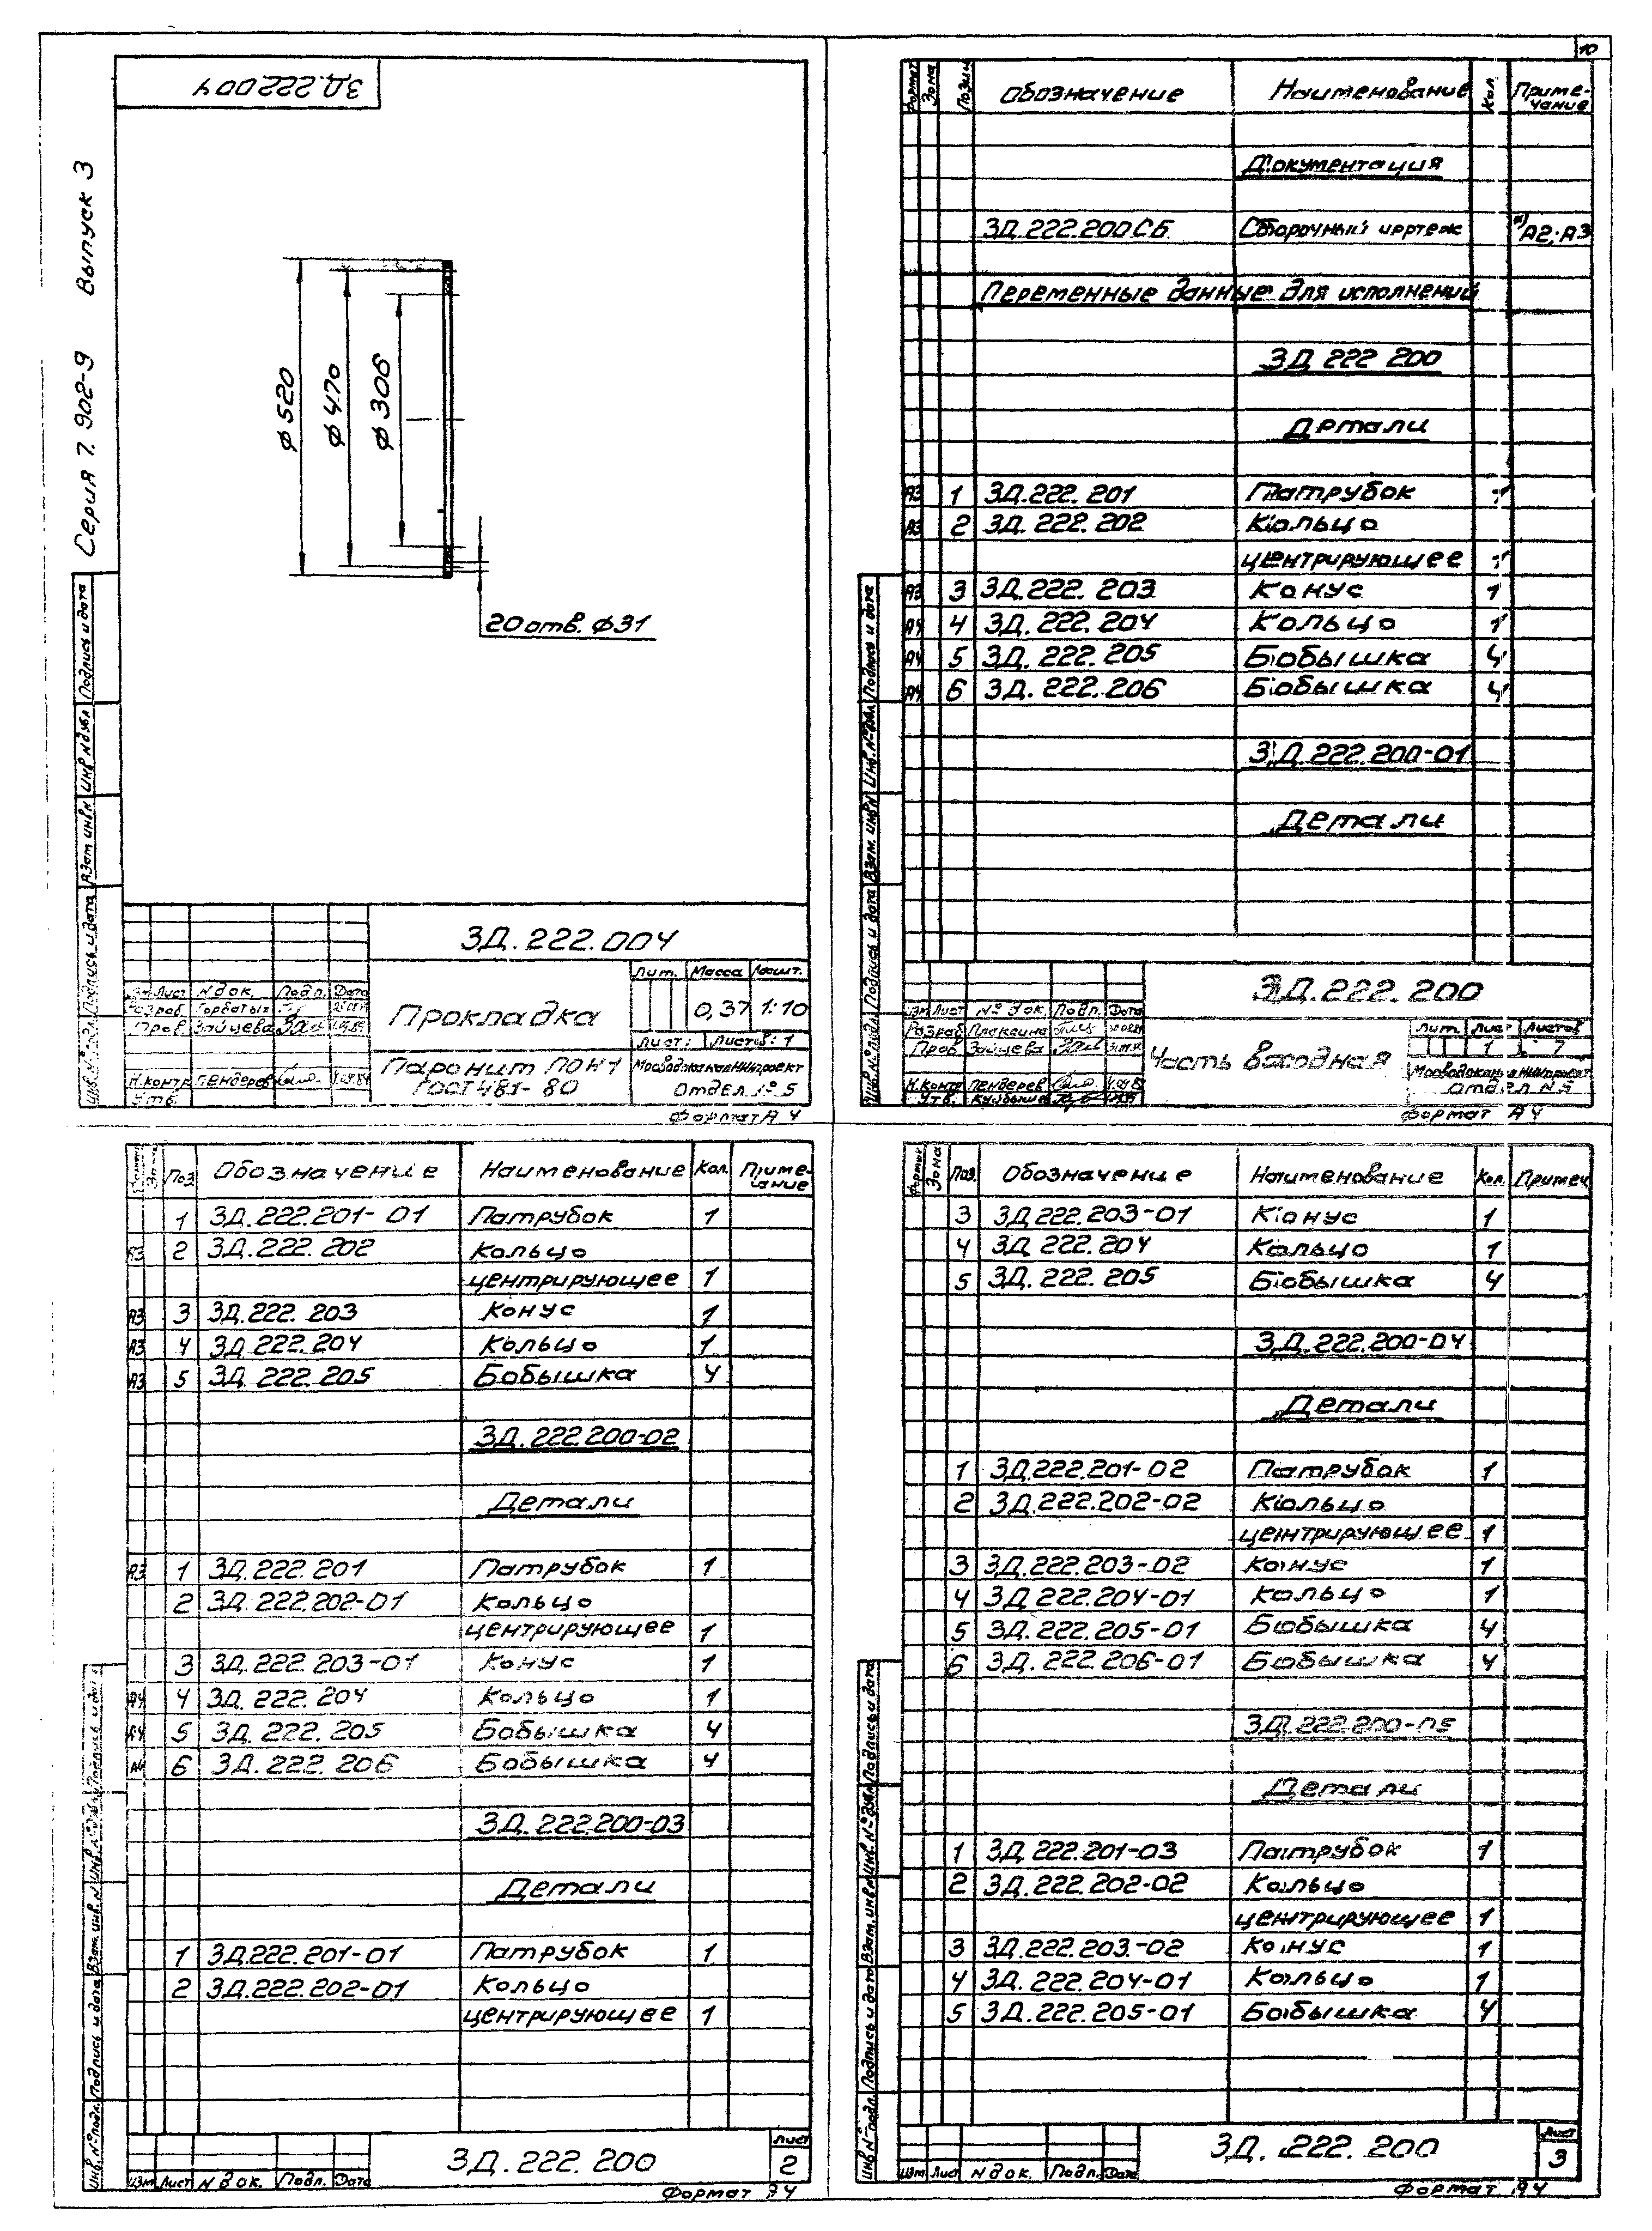 10
3Д.222004
Серия 7.902-9 Выпуск 3
ϕ520
ϕ470
ϕ306
20 отв. ϕ31
Инв.№подл. Подпись и дата Взам инв.№ Инв.№дубл Подпись и дата
3Д.222.004
Прокладка
Лит. Масса Масшт.
0,37 1:10
Лист: Листов: 1
Изм Лист №док. Подп. Дата
Разраб. Горбатых
Пров. Зайцева
Н.контр Пендерев
Утв.
Паронит ПОН 1
ГОСТ 481-80
МосводоканалНИИпроект
Отдел № 5
Формат А4
Формат Зона Позиц Обозначение Наименование Кол. Приме-
чание
Документация
3Д.222.200СБ Сборочный чертеж *) А2; А3
Переменные данные для исполнений
3Д 222 200
Детали
А3 1 3Д.222.201 Патрубок 1
А3 2 3Д.222.202 Кольцо
центрирующее 1
А3 3 3Д.222.203 Конус 1
А4 4 3Д.222.204 Кольцо 1
А4 5 3Д.222.205 Бобышка 4
А4 6 3Д.222.206 Бобышка 4
3Д.222.200-01
Детали
Инв.№подл. Подпись и дата Взам. инв.№ Инв.№дубл. Подпись и дата
3Д.222.200
Изм Лист № док. Подп. Дата
Разраб Плаксина
Пров Зайцева
Н.контр Пендерев
Утв.
Часть входная
Лит. Лист Листов
1 7
МосводоканалНИИпроект
Отдел №5
Формат А4
Формат Зона Поз. Обозначение Наименование Кол. Приме-
чание
1 3Д.222.201-01 Патрубок 1
А3 2 3Д.222.202 Кольцо
центрирующее 1
А3 3 3Д.222.203 Конус 1
А3 4 3Д.222.204 Кольцо 1
А3 5 3Д.222.205 Бобышка 4
3Д.222.200-02
Детали
А3 1 3Д.222.201 Патрубок 1
2 3Д.222.202-01 Кольцо
центрирующее 1
3 3Д.222.203-01 Конус 1
А4 4 3Д.222.204 Кольцо 1
А4 5 3Д.222.205 Бобышка 4
А4 6 3Д.222.206 Бобышка 4
3Д.222.200-03
Детали
1 3Д.222.201-01 Патрубок 1
2 3Д.222.202-01 Кольцо
центрирующее 1
Инв.№подл. Подпись и дата Взам. инв.№ Инв.№дубл Подпись и дата
Изм Лист № док. Подп. Дата
3Д.222.200
Лист
2
Формат А4
Формат Зона Поз. Обозначение Наименование Кол. Примеч.
3 3Д222.203-01 Конус 1
4 3Д 222.204 Кольцо 1
5 3Д.222.205 Бобышка 4
3Д.222.200-04
Детали
1 3Д.222.201-02 Патрубок 1
2 3Д.222.202-02 Кольцо
центрирующее 1
3 3Д.222.203-02 Конус 1
4 3Д.222.204-01 Кольцо 1
5 3Д.222.205-01 Бобышка 4
6 3Д.222.206-01 Бобышка 4
3Д.222.200-05
Детали
1 3Д.222.201-03 Патрубок 1
2 3Д.222.202-02 Кольцо
центрирующее 1
3 3Д.222.203-02 Конус 1
4 3Д.222.204-01 Кольцо 1
5 3Д.222.205-01 Бобышка 4
Инв.№подл. Подпись и дата Взам.инв.№ Инв.№дубл Подпись и дата
Изм Лист № док. Подп. Дата
3Д.222.200
Лист
3
Формат А4